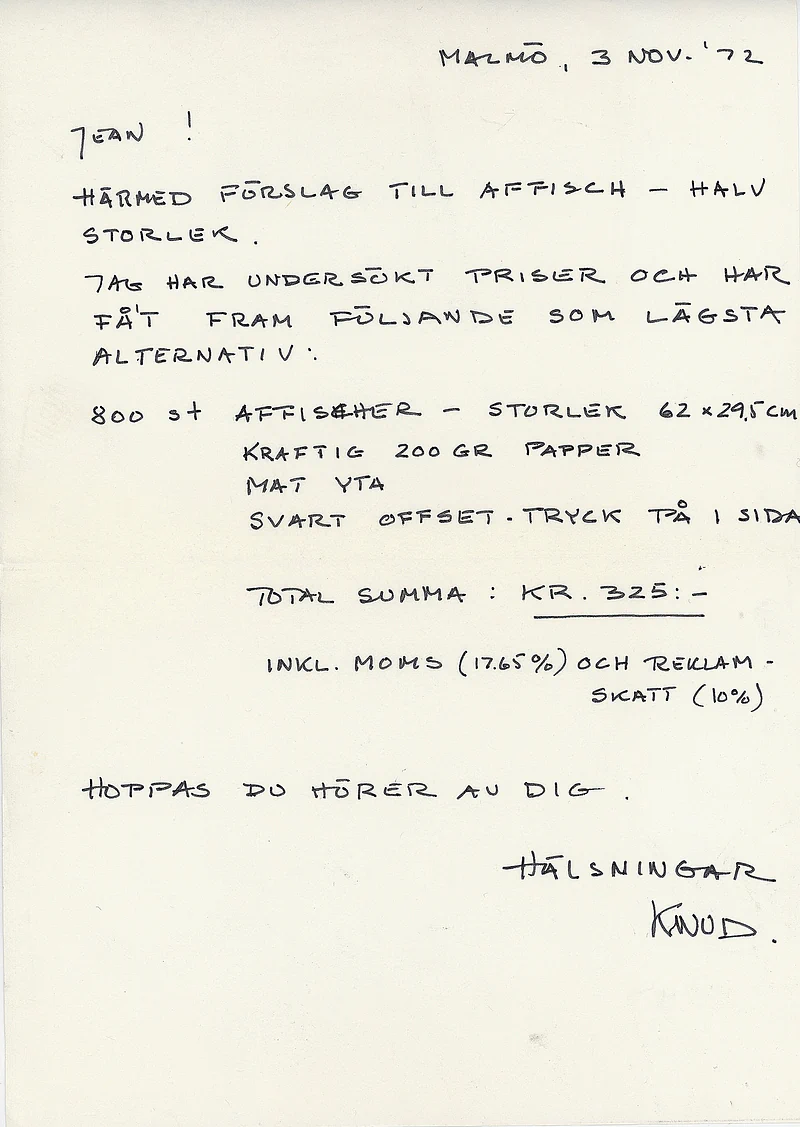 MALMÖ, 3 NOV. '72
JEAN !
HÄRMED FÖRSLAG TILL AFFISCH – HALV
STORLEK.
JAG HAR UNDERSÖKT PRISER OCH HAR
FÅ'T FRAM FÖLJANDE SOM LÄGSTA
ALTERNATIV:
800 st AFFISCHER – STORLEK 62 x 29,5 cm
KRAFTIG 200 GR PAPPER
MAT YTA
SVART OFFSET-TRYCK PÅ 1 SIDA
TOTAL SUMMA : KR. 325:-
INKL. MOMS (17.65%) OCH REKLAM-
SKATT (10%)
HOPPAS DU HÖRER AV DIG.
HÄLSNINGAR
KNUD.